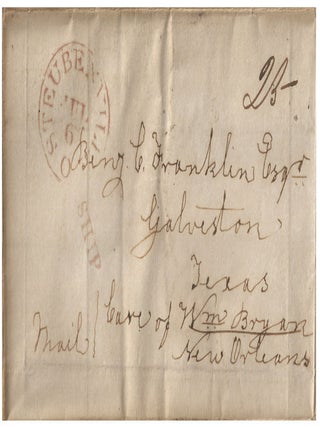 STEUBENVILL
O
25
Benj. C. Franklin Esqr
SHIP
Galveston
Texas
Mail / Care of Wm Bryan
New Orleans